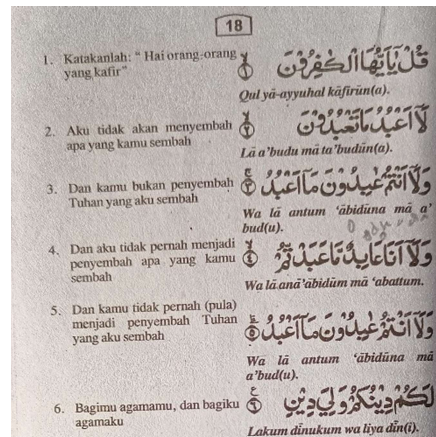 18
1. Katakanlah: “ Hai orang-orang
yang kafir”
قُلْ يٰٓاَيُّهَا الْكٰفِرُوْنَ ۙ ١
Qul yā-ayyuhal kāfirūn(a).
2. Aku tidak akan menyembah
apa yang kamu sembah
لَآ اَعْبُدُ مَا تَعْبُدُوْنَ ۙ ٢
Lā a’budu mā ta’budūn(a).
3. Dan kamu bukan penyembah
Tuhan yang aku sembah
وَلَآ اَنْتُمْ عٰبِدُوْنَ مَآ اَعْبُدُ ۚ ٣
Wa lā antum ‘ābidūna mā a’
bud(u).
4. Dan aku tidak pernah menjadi
penyembah apa yang kamu
sembah
وَلَآ اَنَا۠ عَابِدٌ مَّا عَبَدْتُّمْ ۙ ٤
Wa lā anā ‘ābidūm mā ‘abattum.
5. Dan kamu tidak pernah (pula)
menjadi penyembah Tuhan
yang aku sembah
وَلَآ اَنْتُمْ عٰبِدُوْنَ مَآ اَعْبُدُ ۗ ٥
Wa lā antum ‘ābidūna mā
a’bud(u).
6. Bagimu agamamu, dan bagiku
agamaku
لَكُمْ دِيْنُكُمْ وَلِيَ دِيْنِ ࣖ ٦
Lakum dīnukum wa liya dīn(i).